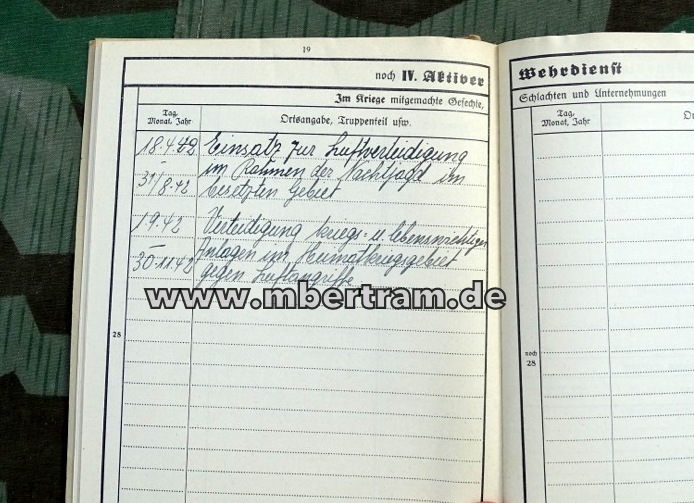 19
noch IV. Aktiver
Im Kriege mitgemachte Gefechte,
28
Tag, Monat, Jahr
Ortsangabe, Truppenteil usw.
18.4.42 Einsatz zur Luftverteidigung
- im Rahmen der Nachtjagd im
31/8.42 besetzten Gebiet
1.9.42 Verteidigung kriegs- u. lebenswichtigen
- Anlagen im Heimatkriegsgebiet
30.11.42 gegen Luftangriffe
www.mbertram.de
28
Wehrdienst
Schlachten und Unternehmungen
Tag, Monat, Jahr
noch 28